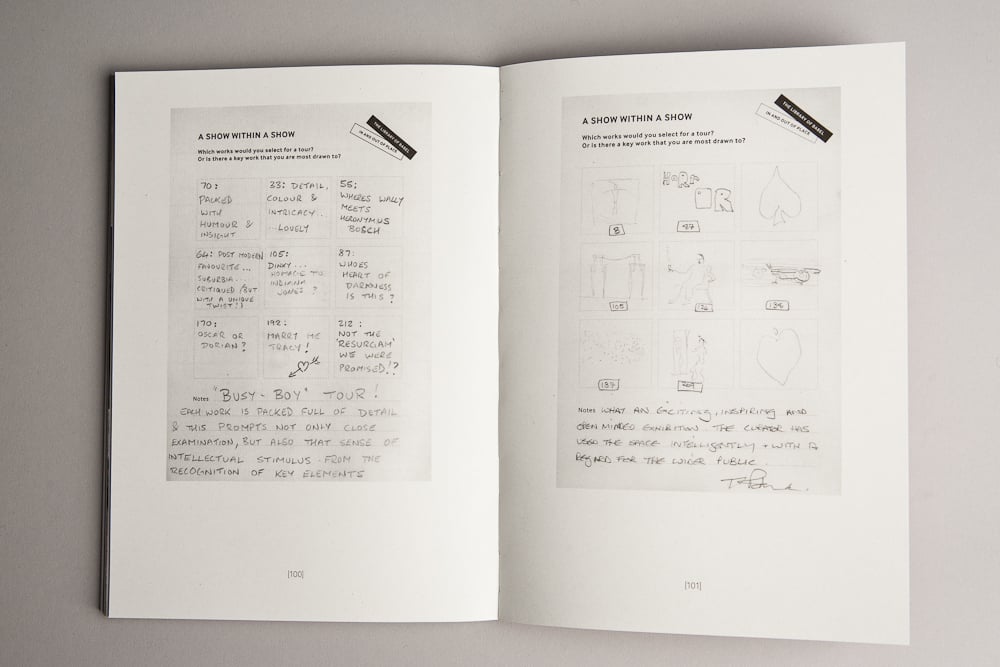 A SHOW WITHIN A SHOW
THE LIBRARY OF BABEL
IN AND OUT OF PLACE
Which works would you select for a tour?
Or is there a key work that you are most drawn to?
70:
PACKED
WITH
HUMOUR &
INSIGHT
33: DETAIL,
COLOUR &
INTRICACY..
...LOVELY
55:
WHERES WALLY
MEETS
HIERONYMUS
BOSCH
64: POST MODERN
FAVOURITE...
SUBURBIA....
CRITIQUED (BUT
WITH A UNIQUE
TWIST!)
105:
DINKY...
HOMAGE TO
INDIANA
JONES?
87:
WHOES
HEART OF
DARKNESS
IS THIS?
170:
OSCAR OR
DORIAN?
192:
MARRY ME
TRACY!
212:
NOT THE
'RESURGIAM'
WE WERE
PROMISED!?
Notes "BUSY-BOY" TOUR!
EACH WORK IS PACKED FULL OF DETAIL
& THIS PROMPTS NOT ONLY CLOSE
EXAMINATION, BUT ALSO THAT SENSE OF
INTELLECTUAL STIMULUS - FROM THE
RECOGNITION OF KEY ELEMENTS
|100|
A SHOW WITHIN A SHOW
THE LIBRARY OF BABEL
IN AND OUT OF PLACE
Which works would you select for a tour?
Or is there a key work that you are most drawn to?
8
OR
105
187
Notes WHAT AN EXCITING, INSPIRING AND
OPEN MINDED EXHIBITION. THE CURATOR HAS
USED THE SPACE INTELLIGENTLY + WITH A
REGARD FOR THE WIDER PUBLIC.
|101|